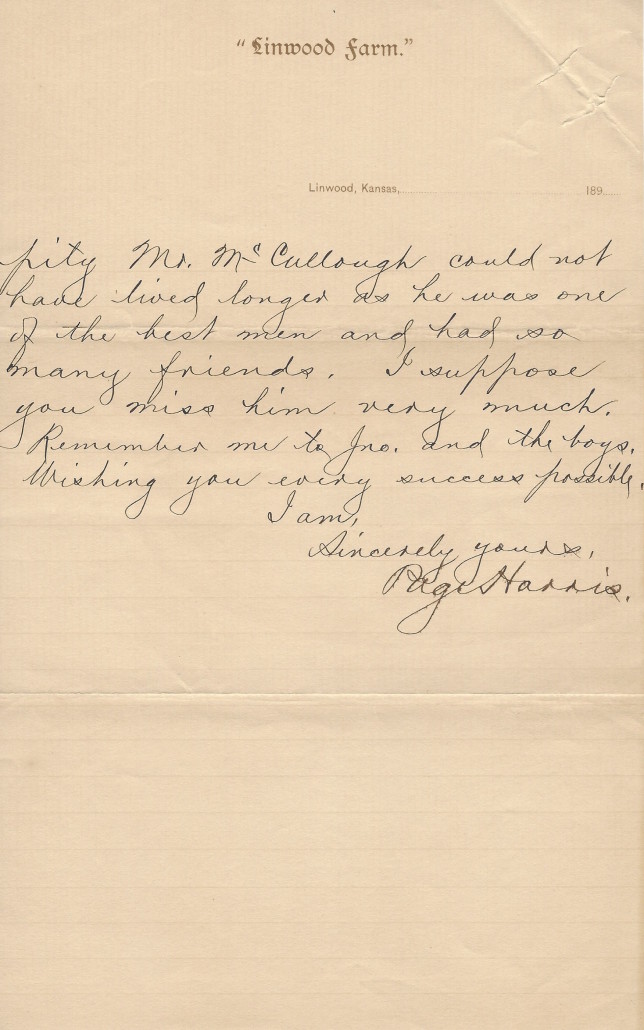 "Linwood Farm."
Linwood, Kansas, 189
pity Mr. McCullough could not
have lived longer as he was one
of the best men and had so
many friends. I suppose
you miss him very much.
Remember me to Jno. and the boys.
Wishing you every success possible,
I am,
Sincerely yours,
Page Harris.